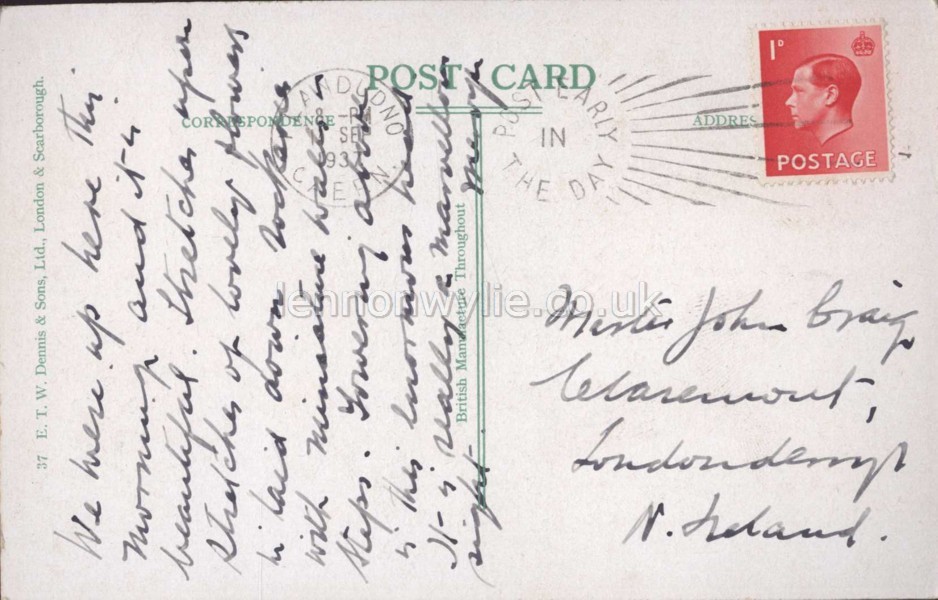 POST CARD
CORRESPONDENCE
ADDRES
LLANDUDNO
SEP
193
POST EARLY
IN
THE DAY
1D
POSTAGE
37 E. T. W. Dennis & Sons, Ltd., London & Scarborough.
British Manufacture Throughout
We were up here this
morning and it is
beautiful. Stretches upon
stretches of lovely flowers
laid down
with miniature water
steps. Towering above
is this enormous head
It is really a marvellous
sight.
Margt
Master John Craig
Claremont,
Londonderry
N. Ireland.
lennonwylie.co.uk